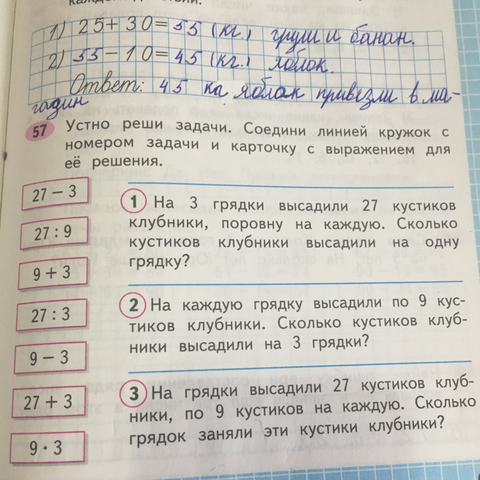 1) 25 + 30 = 55 (кг.) груш и банан.
2) 55 - 10 = 45 (кг.) яблок.
Ответ: 45 кг яблок привезли в ма-
газин
57 Устно реши задачи. Соедини линией кружок с
номером задачи и карточку с выражением для
её решения.
27 − 3
27 : 9
9 + 3
27 : 3
9 − 3
27 + 3
9 · 3
1 На 3 грядки высадили 27 кустиков
клубники, поровну на каждую. Сколько
кустиков клубники высадили на одну
грядку?
2 На каждую грядку высадили по 9 кус-
тиков клубники. Сколько кустиков клуб-
ники высадили на 3 грядки?
3 На грядки высадили 27 кустиков клуб-
ники, по 9 кустиков на каждую. Сколько
грядок заняли эти кустики клубники?